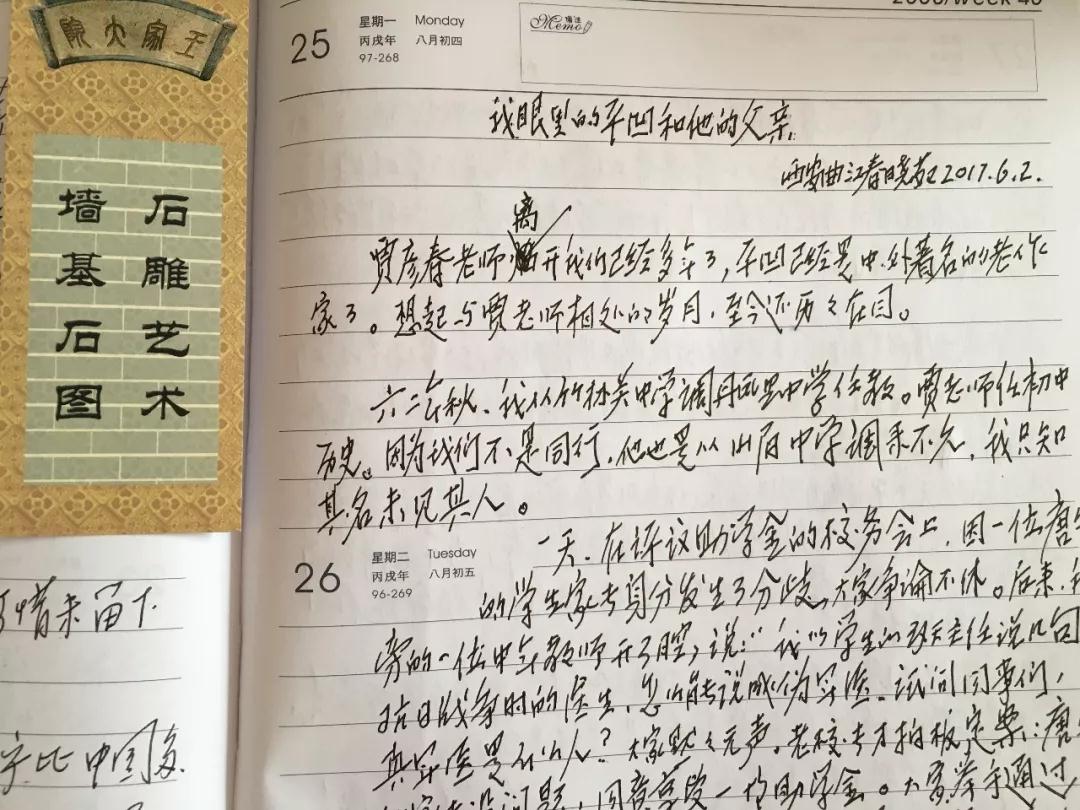 王家大院
石雕艺术
墙基石图
25
星期一 Monday
丙戌年 八月初四
97-268
Memo 备注
我眼里的平凹和他的父亲
西安曲江春晓苑 2017.6.2.
离
贾彦春老师开我们已经多年了，平凹已经是中外著名的老作
家了。想起与贾老师相处的岁月，至今还历々在目。
六二年秋、我从竹林关中学调丹凤中学任教。贾老师任初中
历史。因为我们不是同行，他也是从山阳中学调来不久，我只知
其名未见其人。
26
星期二 Tuesday
丙戌年 八月初五
96-269
一天、在评议助学金的校务会上，因一位唐
的学生家长身分发生了分歧，大家争论不休。后来，
旁的一位中年教师开了腔，说：“我以学生的班主任说几句
抗日战争时的医生，怎能说成伪军医。试问同事们，
真军医是什么人？大家默々无声。老校长才拍板定案：唐
没问题，同意享受一份助学金。大家举手通过，
惜未留下
字比中国多